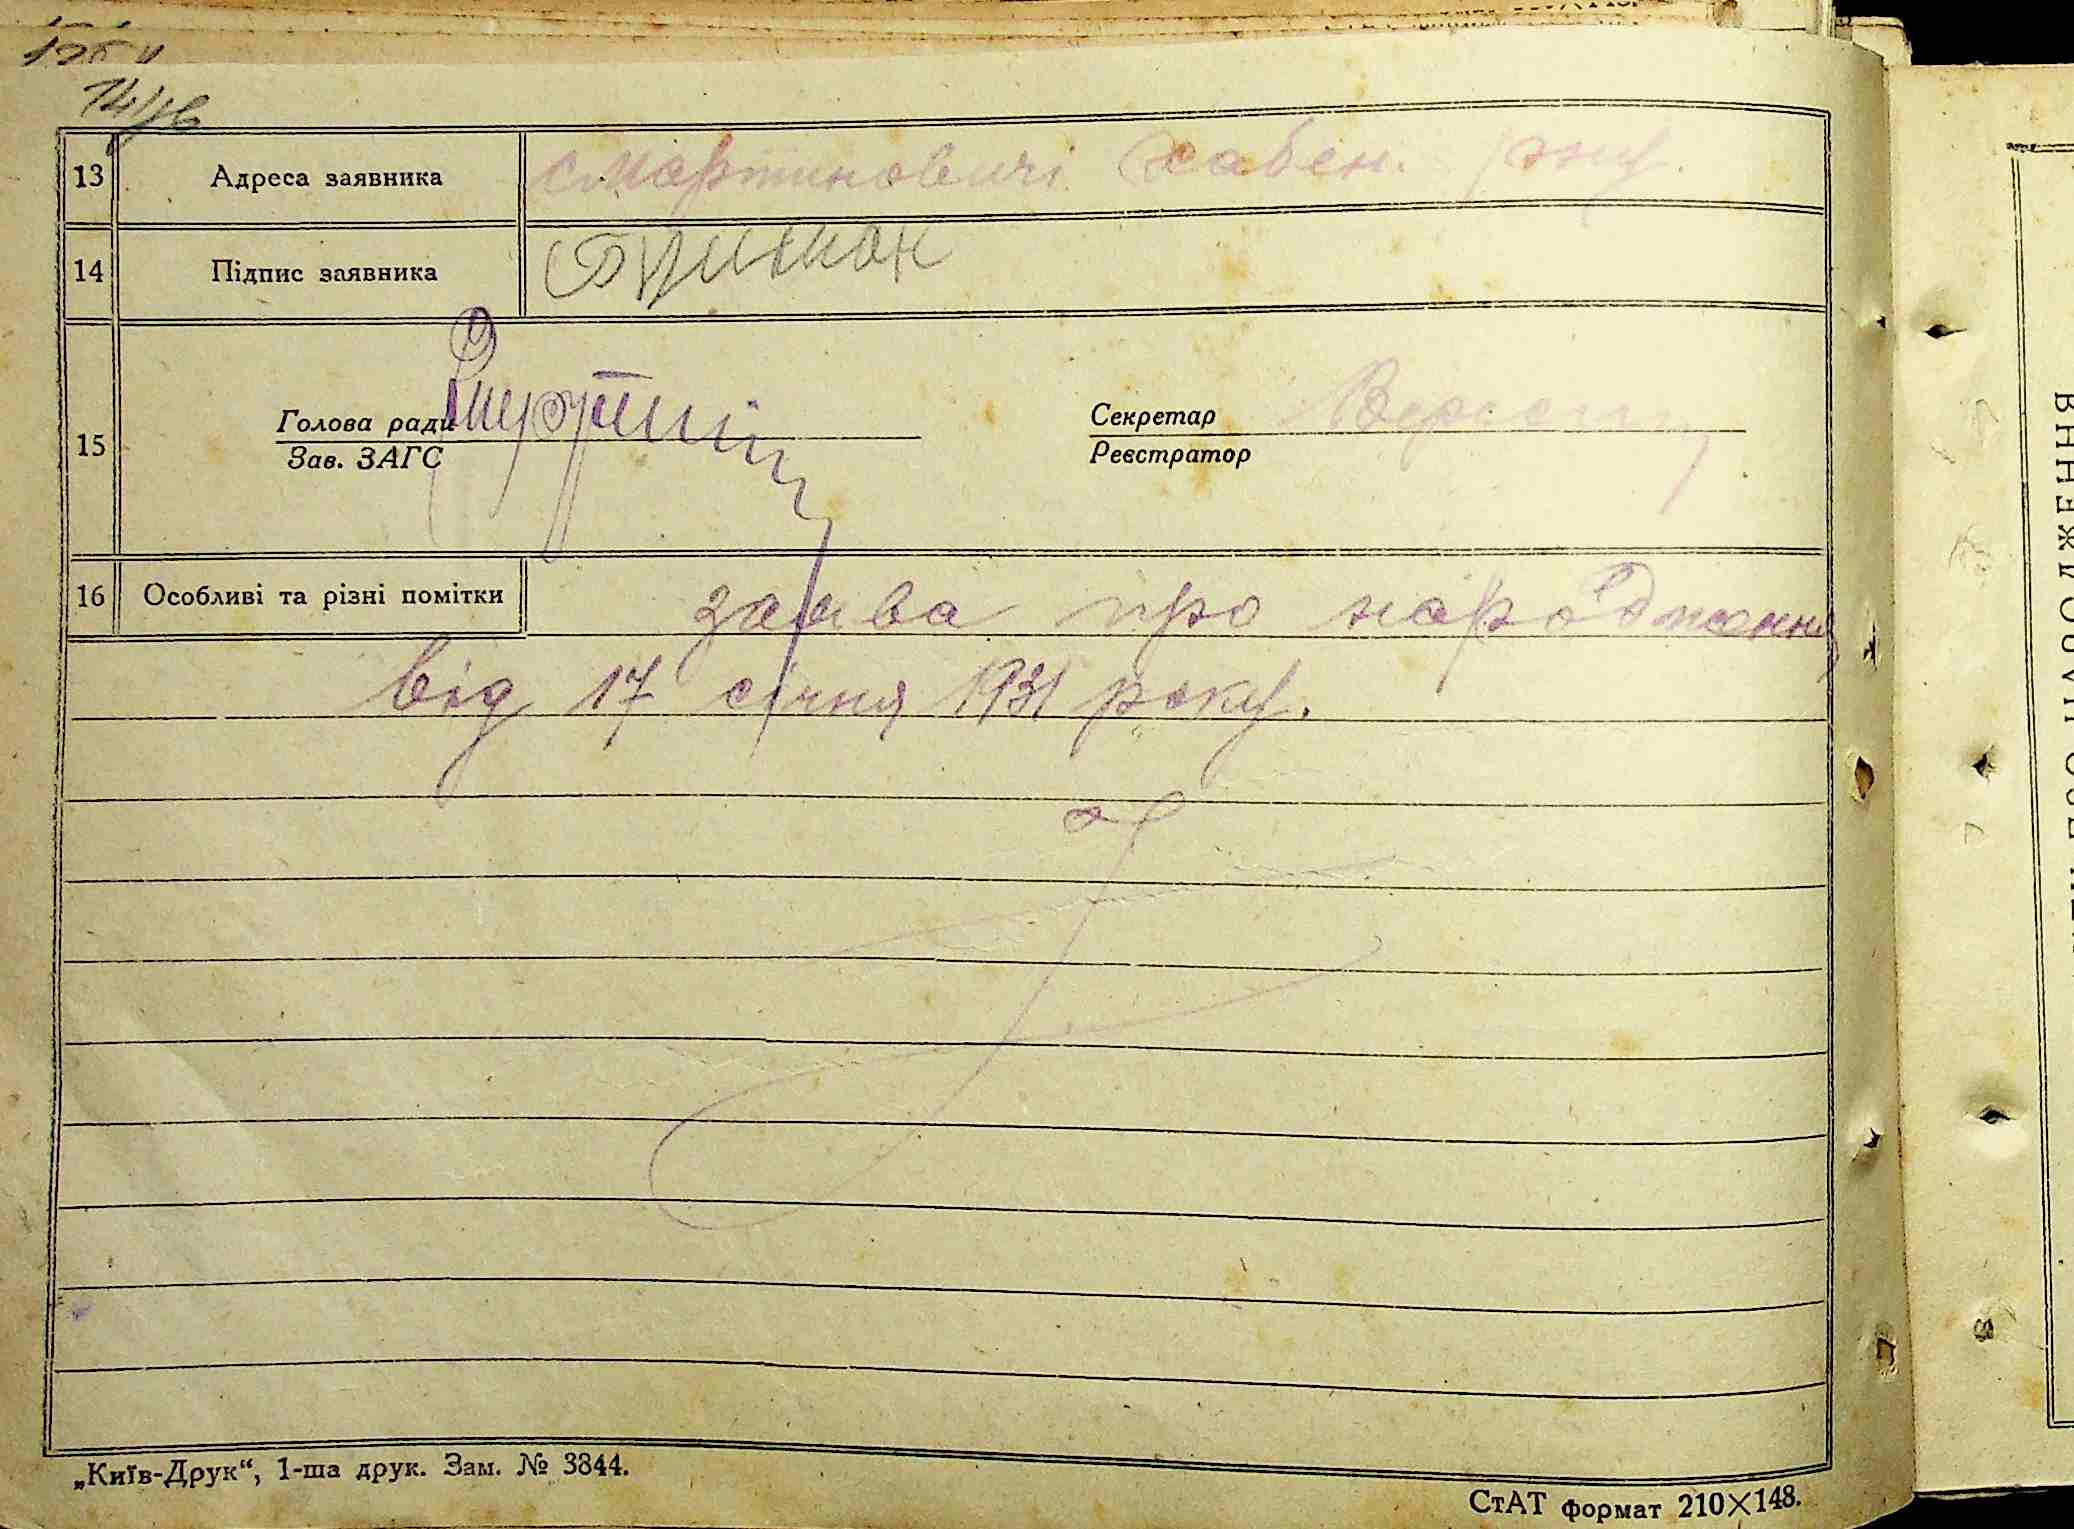 14/ІВ
13 Адреса заявника с. Мартиновичі Хабен. р-ну.
14 Підпис заявника
15 Голова ради
Зав. ЗАГС
Секретар
Реєстратор
16 Особливі та різні помітки заява про народження
від 17 січня 1931 року.
„Київ-Друк“, 1-ша друк. Зам. № 3344.
СтАТ формат 210×148.